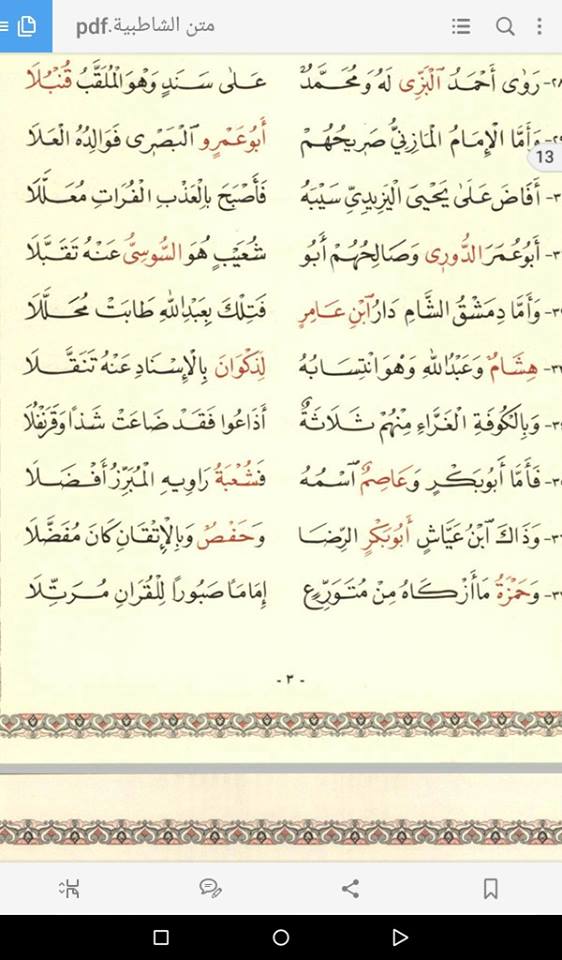 متن الشاطبية.pdf
٢٨- رَوَى أَحْمَدُ الْبَزِّي لَهُ وَمُحَمَّدٌ عَلَى سَنَدٍ وَهْوَ الْمُلَقَّبُ قُنْبُلَا
13
٢٩- وَأَمَّا الْإِمَامُ الْمَازِنِيُّ صَرِيحُهُمْ أَبُو عَمْرٍو الْبَصْرِي فَوَالِدُهُ الْعَلَا
٣٠- أَفَاضَ عَلَى يَحْيَى الْيَزِيدِيِّ سَيْبَهُ فَأَصْبَحَ بِالْعَذْبِ الْفُرَاتِ مُعَلَّلَا
٣١- أَبُو عُمَرَ الدُّورِي وَصَالِحُهُمْ أَبُو شُعَيْبٍ هُوَ السُّوسِيُّ عَنْهُ تَقَبَّلَا
٣٢- وَأَمَّا دِمَشْقُ الشَّامِ دَارُ ابْنِ عَامِرٍ فَتِلْكَ بِعَبْدِ اللهِ طَابَتْ مُحَلَّلَا
٣٣- هِشَامٌ وَعَبْدُ اللهِ وَهْوَ انْتِسَابُهُ لِذَكْوَانَ بِالْإِسْنَادِ عَنْهُ تَنَقَّلَا
٣٤- وَبِالْكُوفَةِ الْغَرَّاءِ مِنْهُمْ ثَلَاثَةٌ أَذَاعُوا فَقَدْ ضَاعَتْ شَذًا وَقَرَنْفُلَا
٣٥- فَأَمَّا أَبُو بَكْرٍ وَعَاصِمٌ اسْمُهُ فَشُعْبَةُ رَاوِيهِ الْمُبَرِّزُ أَفْضَلَا
٣٦- وَذَاكَ ابْنُ عَيَّاشٍ أَبُو بَكْرٍ الرِّضَا وَحَفْصٌ وَبِالْإِتْقَانِ كَانَ مُفَضَّلَا
٣٧- وَحَمْزَةُ مَا أَزْكَاهُ مِنْ مُتَوَرِّعٍ إِمَامًا صَبُورًا لِلْقُرَانِ مُرَتِّلَا
- ٣ -